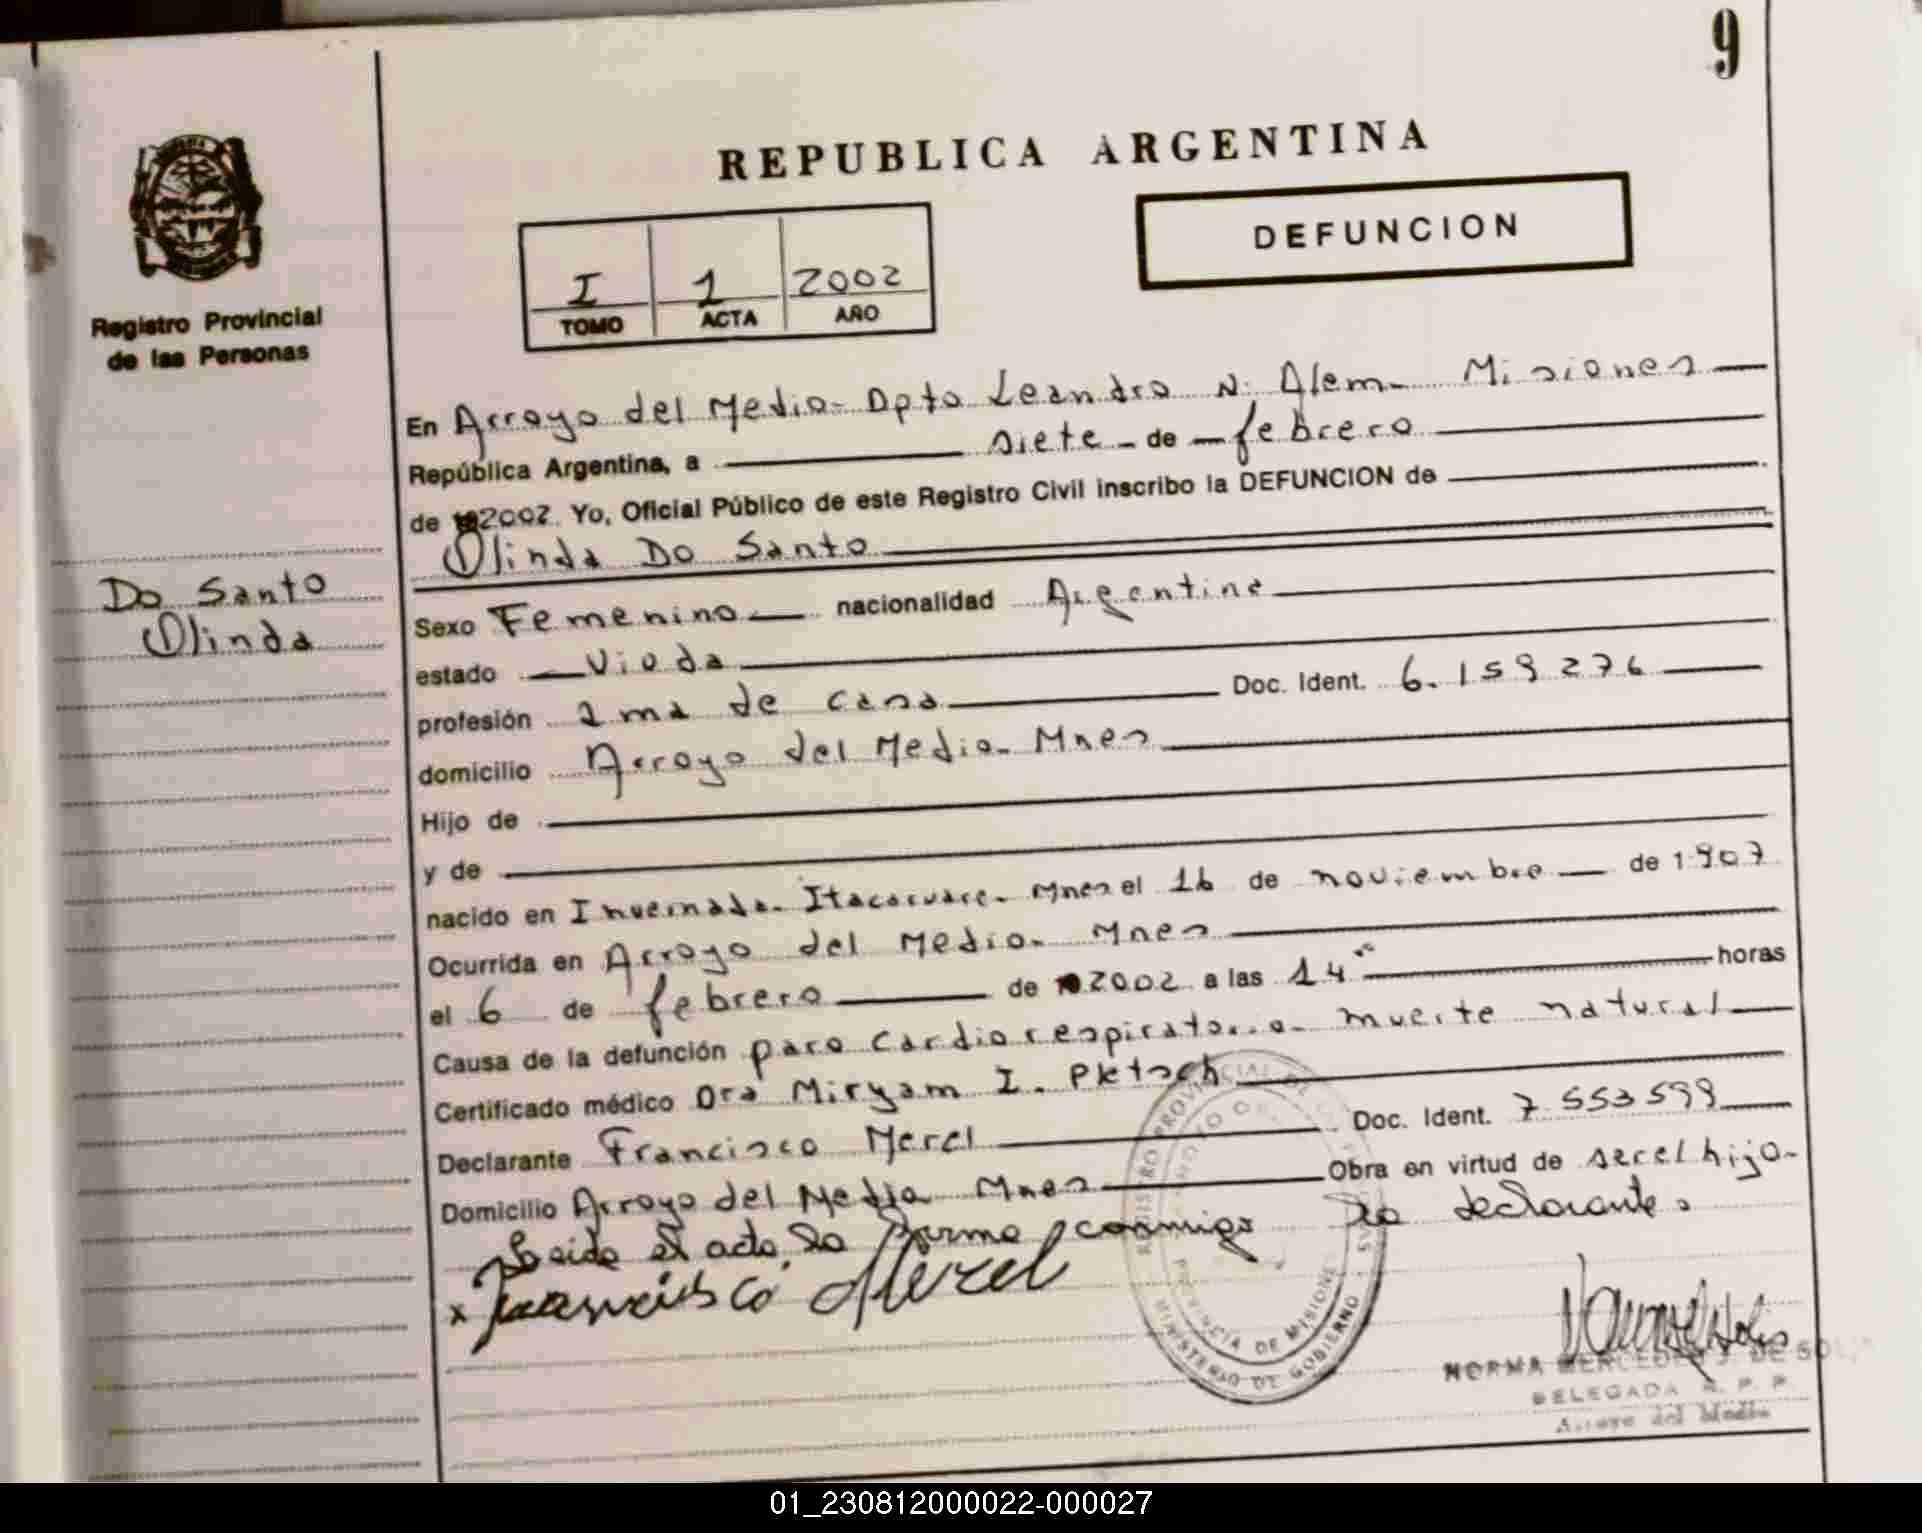 9
REPUBLICA ARGENTINA
DEFUNCION
I 1 2002
TOMO ACTA AÑO
Registro Provincial
de las Personas
Do Santo
Olinda
En Arroyo del Medio - Dpto Leandro N. Alem - Misiones
República Argentina, a siete - de febrero
de 2002. Yo, Oficial Público de este Registro Civil inscribo la DEFUNCION de
Olinda Do Santo
Sexo Femenino nacionalidad Argentina
estado Viuda
profesión ama de casa Doc. Ident. 6.159276
domicilio Arroyo del Medio - Mnes
Hijo de
y de
nacido en Invernada - Itacaruare - Mnes el 16 de noviembre de 1907
Ocurrida en Arroyo del Medio - Mnes
el 6 de febrero de 2002 a las 14 horas
Causa de la defunción paro cardiorespiratorio - muerte natural
Certificado médico Dra Miryam I.
Declarante Francisco Merel Doc. Ident. 7.553599
Domicilio Arroyo del Medio Mnes Obra en virtud de ser el hijo -
Leida el acta la firma conmigo declarante.
x Francisco Merel
REGISTRO PROVINCIAL DE LAS PERSONAS
PROVINCIA DE MISIONES
MINISTERIO DE GOBIERNO
NORMA MERCEDES J. DE
DELEGADA R. P. P.
Arroyo del Medio
01_230812000022-000027